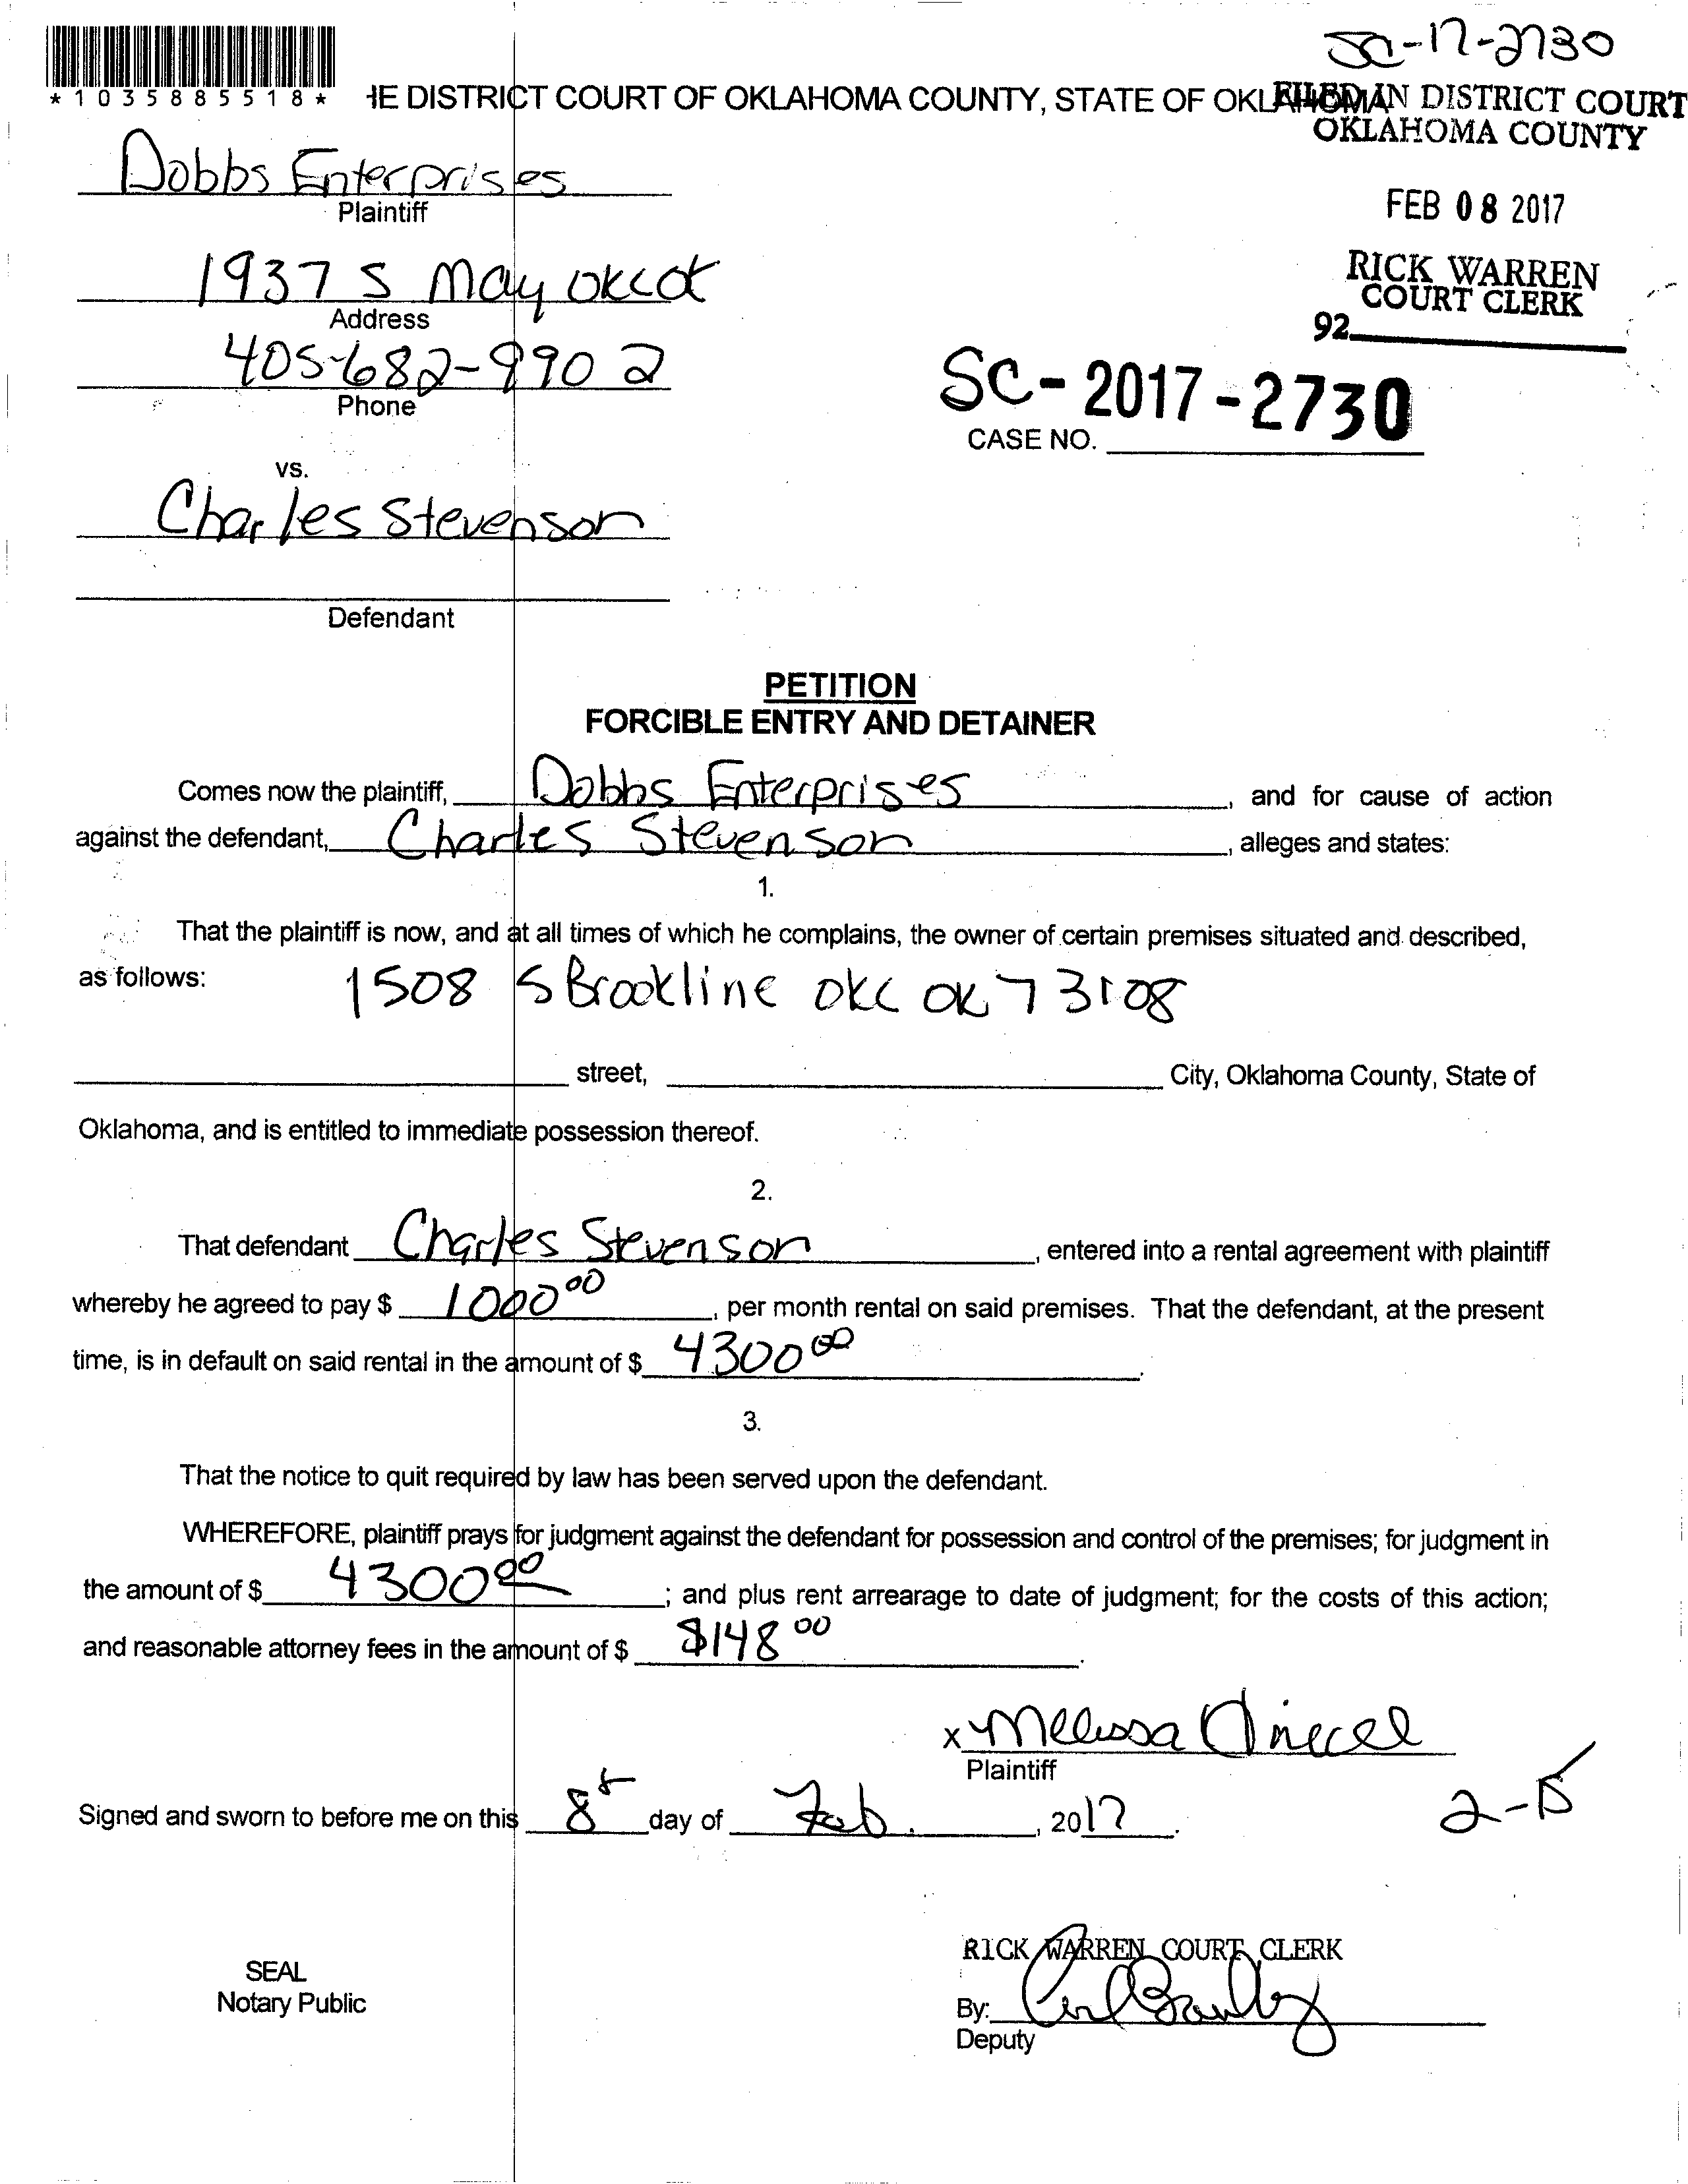 SC-17-2730
*1035885518*
HE DISTRICT COURT OF OKLAHOMA COUNTY, STATE OF OKLAHOMA
FILED IN DISTRICT COURT
OKLAHOMA COUNTY
Dobbs Enterprises
Plaintiff
FEB 08 2017
1937 S May OKC OK
Address
RICK WARREN
COURT CLERK
92
405-682-9902
Phone
SC-2017-2730
CASE NO.
vs.
Charles Stevenson
Defendant
PETITION
FORCIBLE ENTRY AND DETAINER
Comes now the plaintiff, Dobbs Enterprises, and for cause of action
against the defendant, Charles Stevenson, alleges and states:
1.
That the plaintiff is now, and at all times of which he complains, the owner of certain premises situated and described,
as follows: 1508 S Brookline OKC OK 73108
street, City, Oklahoma County, State of
Oklahoma, and is entitled to immediate possession thereof.
2.
That defendant Charles Stevenson, entered into a rental agreement with plaintiff
whereby he agreed to pay $ 1000 00, per month rental on said premises. That the defendant, at the present
time, is in default on said rental in the amount of $ 4300 00.
3.
That the notice to quit required by law has been served upon the defendant.
WHEREFORE, plaintiff prays for judgment against the defendant for possession and control of the premises; for judgment in
the amount of $ 4300 00; and plus rent arrearage to date of judgment; for the costs of this action;
and reasonable attorney fees in the amount of $ $148 00.
x Melissa
Plaintiff
Signed and sworn to before me on this 8th day of Feb., 2017.
RICK WARREN COURT CLERK
SEAL
Notary Public
By:
Deputy